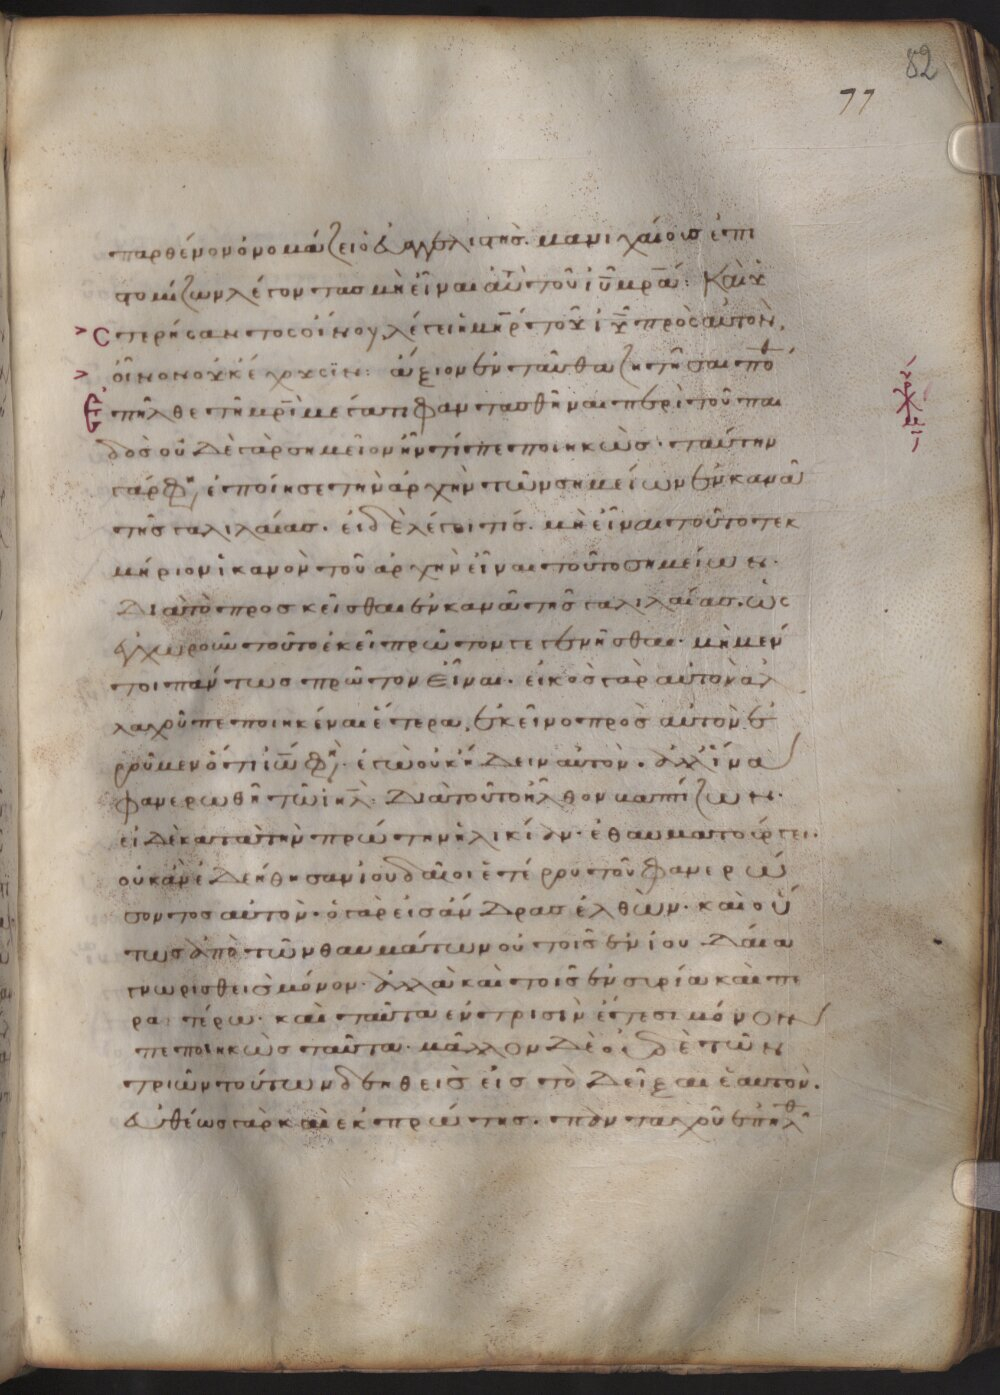 82
77
παρθένον ὀνομάζει ὁ εὐαγγελιστὴς. μανιχαίους ἐπι
στομίζων λέγοντας μὴ εἶναι αὐτοῦ ἰῦ μρᾱ: Καὶ ὑ
στερήσαντος οἴνου, λέγει ἡ μηρ τοῦ ἰῦ πρὸς αὐτὸν,
οἶνον οὐκ ἔχουσϊν: ἄξιον ἐνταῦθα ζητῆσαι πόθ
ἐπῆλθε τῆ μρὶ μέγα τι φαντασθῆναι περὶ τοῦ παι
δός οὐδὲ γὰρ σημεῖον ἦν τί πεποιηκὼς. ταύτην
γάρ φη ἐποίησε τὴν ἀρχὴν τῶν σημείων ἐν κανᾶ
τῆς γαλιλαίας. εἰ δὲ λέγοι τίς. μὴ εἶναι τοῦτο τεκ
μήριον ἱκανὸν τοῦ ἀρχὴν εἶναι τοῦτο σημείων.
Διατὸ προσκεῖσθαι ἐν κανᾶ τῆς γαλιλαίας. ὡς
ἐγχωροῦν τοῦτο ἐκεῖ πρῶτον γεγενῆσθαι. μὴ μέν
τοι πάντως πρῶτον εἶναι. εἰκὸς γὰρ αὐτὸν ἀλ
λαχοῦ πεποιηκέναι ἕτερα, ἐκεῖνο πρὸς αὐτὸν ἐ
ροῦμεν ὅτι ἰω φη. ἐγὼ οὐκ ἤδειν αὐτὸν. ἀλλ' ἵνα
φανερωθῆ τῶ ἰηλ. Διατοῦτο ἦλθον βαπτίζων.
εἰ δὲ κατὰ τὴν πρώτην ἡλικίαν. ἐθαυματούργει.
οὐκ ἂν ἐδεήθησαν ἰουδαῖοι ἑτέρου τοῦ φανερώ
σοντος αὐτὸν. ὁ γὰρ εἰς ἄνδρας ἐλθὼν. καὶ οὕ
τως ἀπὸ τῶν θαυμάτων οὐ τοῖς ἐν ἰουδαία
γνωρισθεὶς μόνον. ἀλλὰ καὶ τοῖς ἐν συρία καὶ πε
ραιτέρω. καὶ ταῦτα ἐν τρισὶν ἔτεσι μόνον
πεποιηκὼς ταῦτα. μᾶλλον δὲ οὐδὲ τῶν
τριῶν τούτων δεηθεὶς εἰς τὸ δεῖξαι ἑαυτὸν.
εὐθέως γὰρ καὶ ἐκ πρώτης. πανταχοῦ ἐπῆλθ